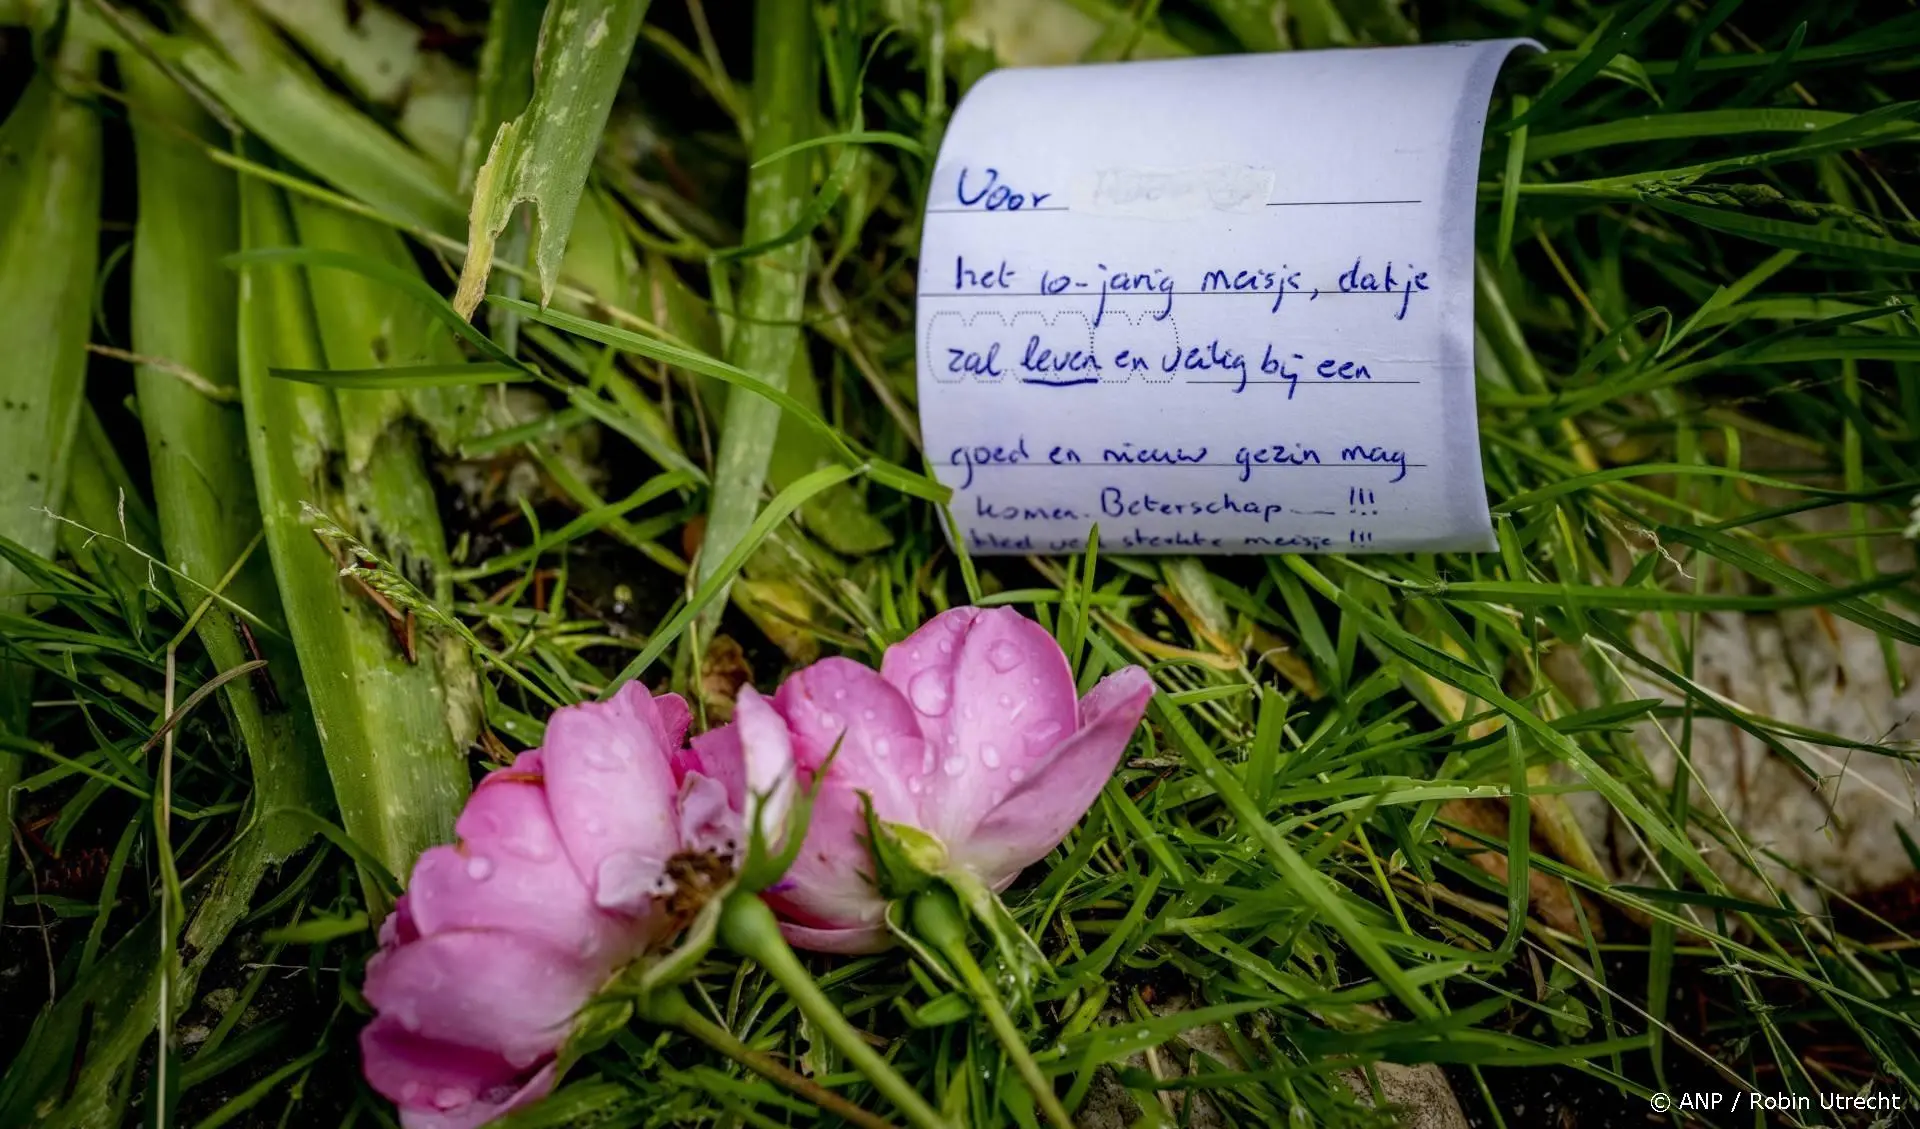 Voor
het 10-jarig meisje, dat je
zal leven en veilig bij een
goed en nieuw gezin mag
komen. Beterschap — !!!
sterkte meisje !!!
© ANP / Robin Utrecht